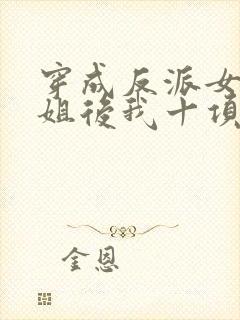 穿成反派女
姐後我十項
金恩